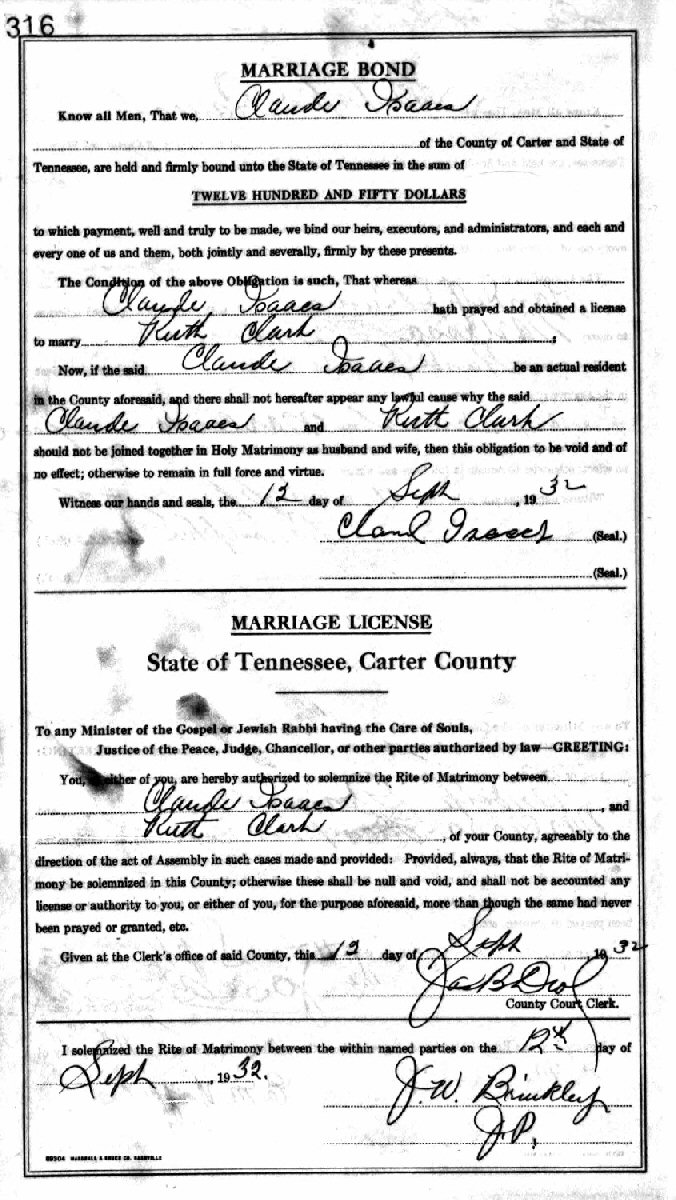 316
MARRIAGE BOND
Know all Men, That we, Claude Isaacs
of the County of Carter and State of
Tennessee, are held and firmly bound unto the State of Tennessee in the sum of
TWELVE HUNDRED AND FIFTY DOLLARS
to which payment, well and truly to be made, we bind our heirs, executors, and administrators, and each and
every one of us and them, both jointly and severally, firmly by these presents.
The Condition of the above Obligation is such, That whereas
Claude Isaacs hath prayed and obtained a license
to marry Ruth Clark ;
Now, if the said Claude Isaacs be an actual resident
in the County aforesaid, and there shall not hereafter appear any lawful cause why the said
Claude Isaacs and Ruth Clark
should not be joined together in Holy Matrimony as husband and wife, then this obligation to be void and of
no effect; otherwise to remain in full force and virtue.
Witness our hands and seals, the 12 day of Seph , 19 32
Claud Isaacs (Seal.)
(Seal.)
MARRIAGE LICENSE
State of Tennessee, Carter County
To any Minister of the Gospel or Jewish Rabbi having the Care of Souls,
Justice of the Peace, Judge, Chancellor, or other parties authorized by law—GREETING:
You, or either of you, are hereby authorized to solemnize the Rite of Matrimony between
Claude Isaacs , and
Ruth Clark , of your County, agreeably to the
direction of the act of Assembly in such cases made and provided: Provided, always, that the Rite of Matri-
mony be solemnized in this County; otherwise these shall be null and void, and shall not be accounted any
license or authority to you, or either of you, for the purpose aforesaid, more than though the same had never
been prayed or granted, etc.
Given at the Clerk's office of said County, this 12 day of Seph 19 32
Jas B
County Court Clerk.
I solemnized the Rite of Matrimony between the within named parties on the 12th day of
Seph , 19 32. J. W. Brinkley
J.P.
MARSHALL & BRUCE CO. NASHVILLE